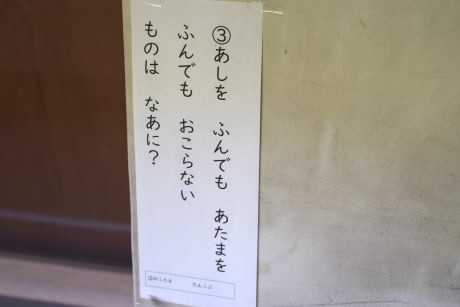 ③あしを　ふんでも　あたまを
ふんでも　おこらない
ものは　なあに？